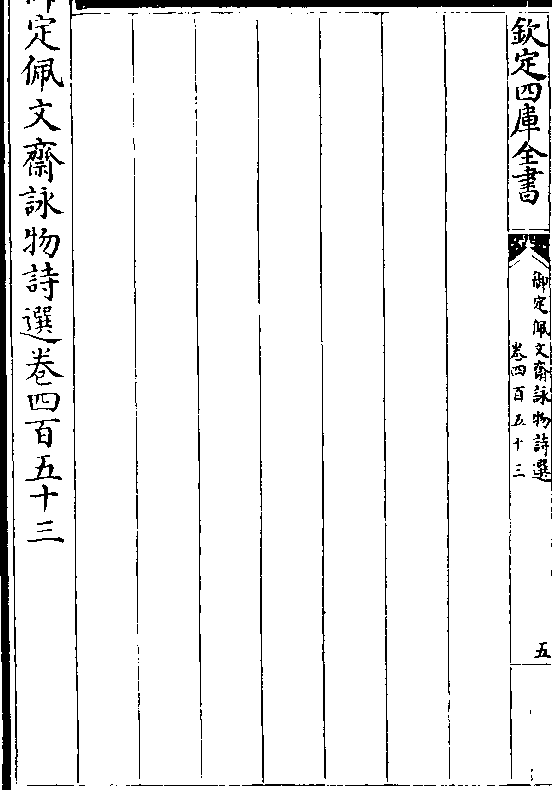 欽定四庫全書
御定佩文齋詠物詩選
卷四百五十三
五
御定佩文齋詠物詩選卷四百五十三